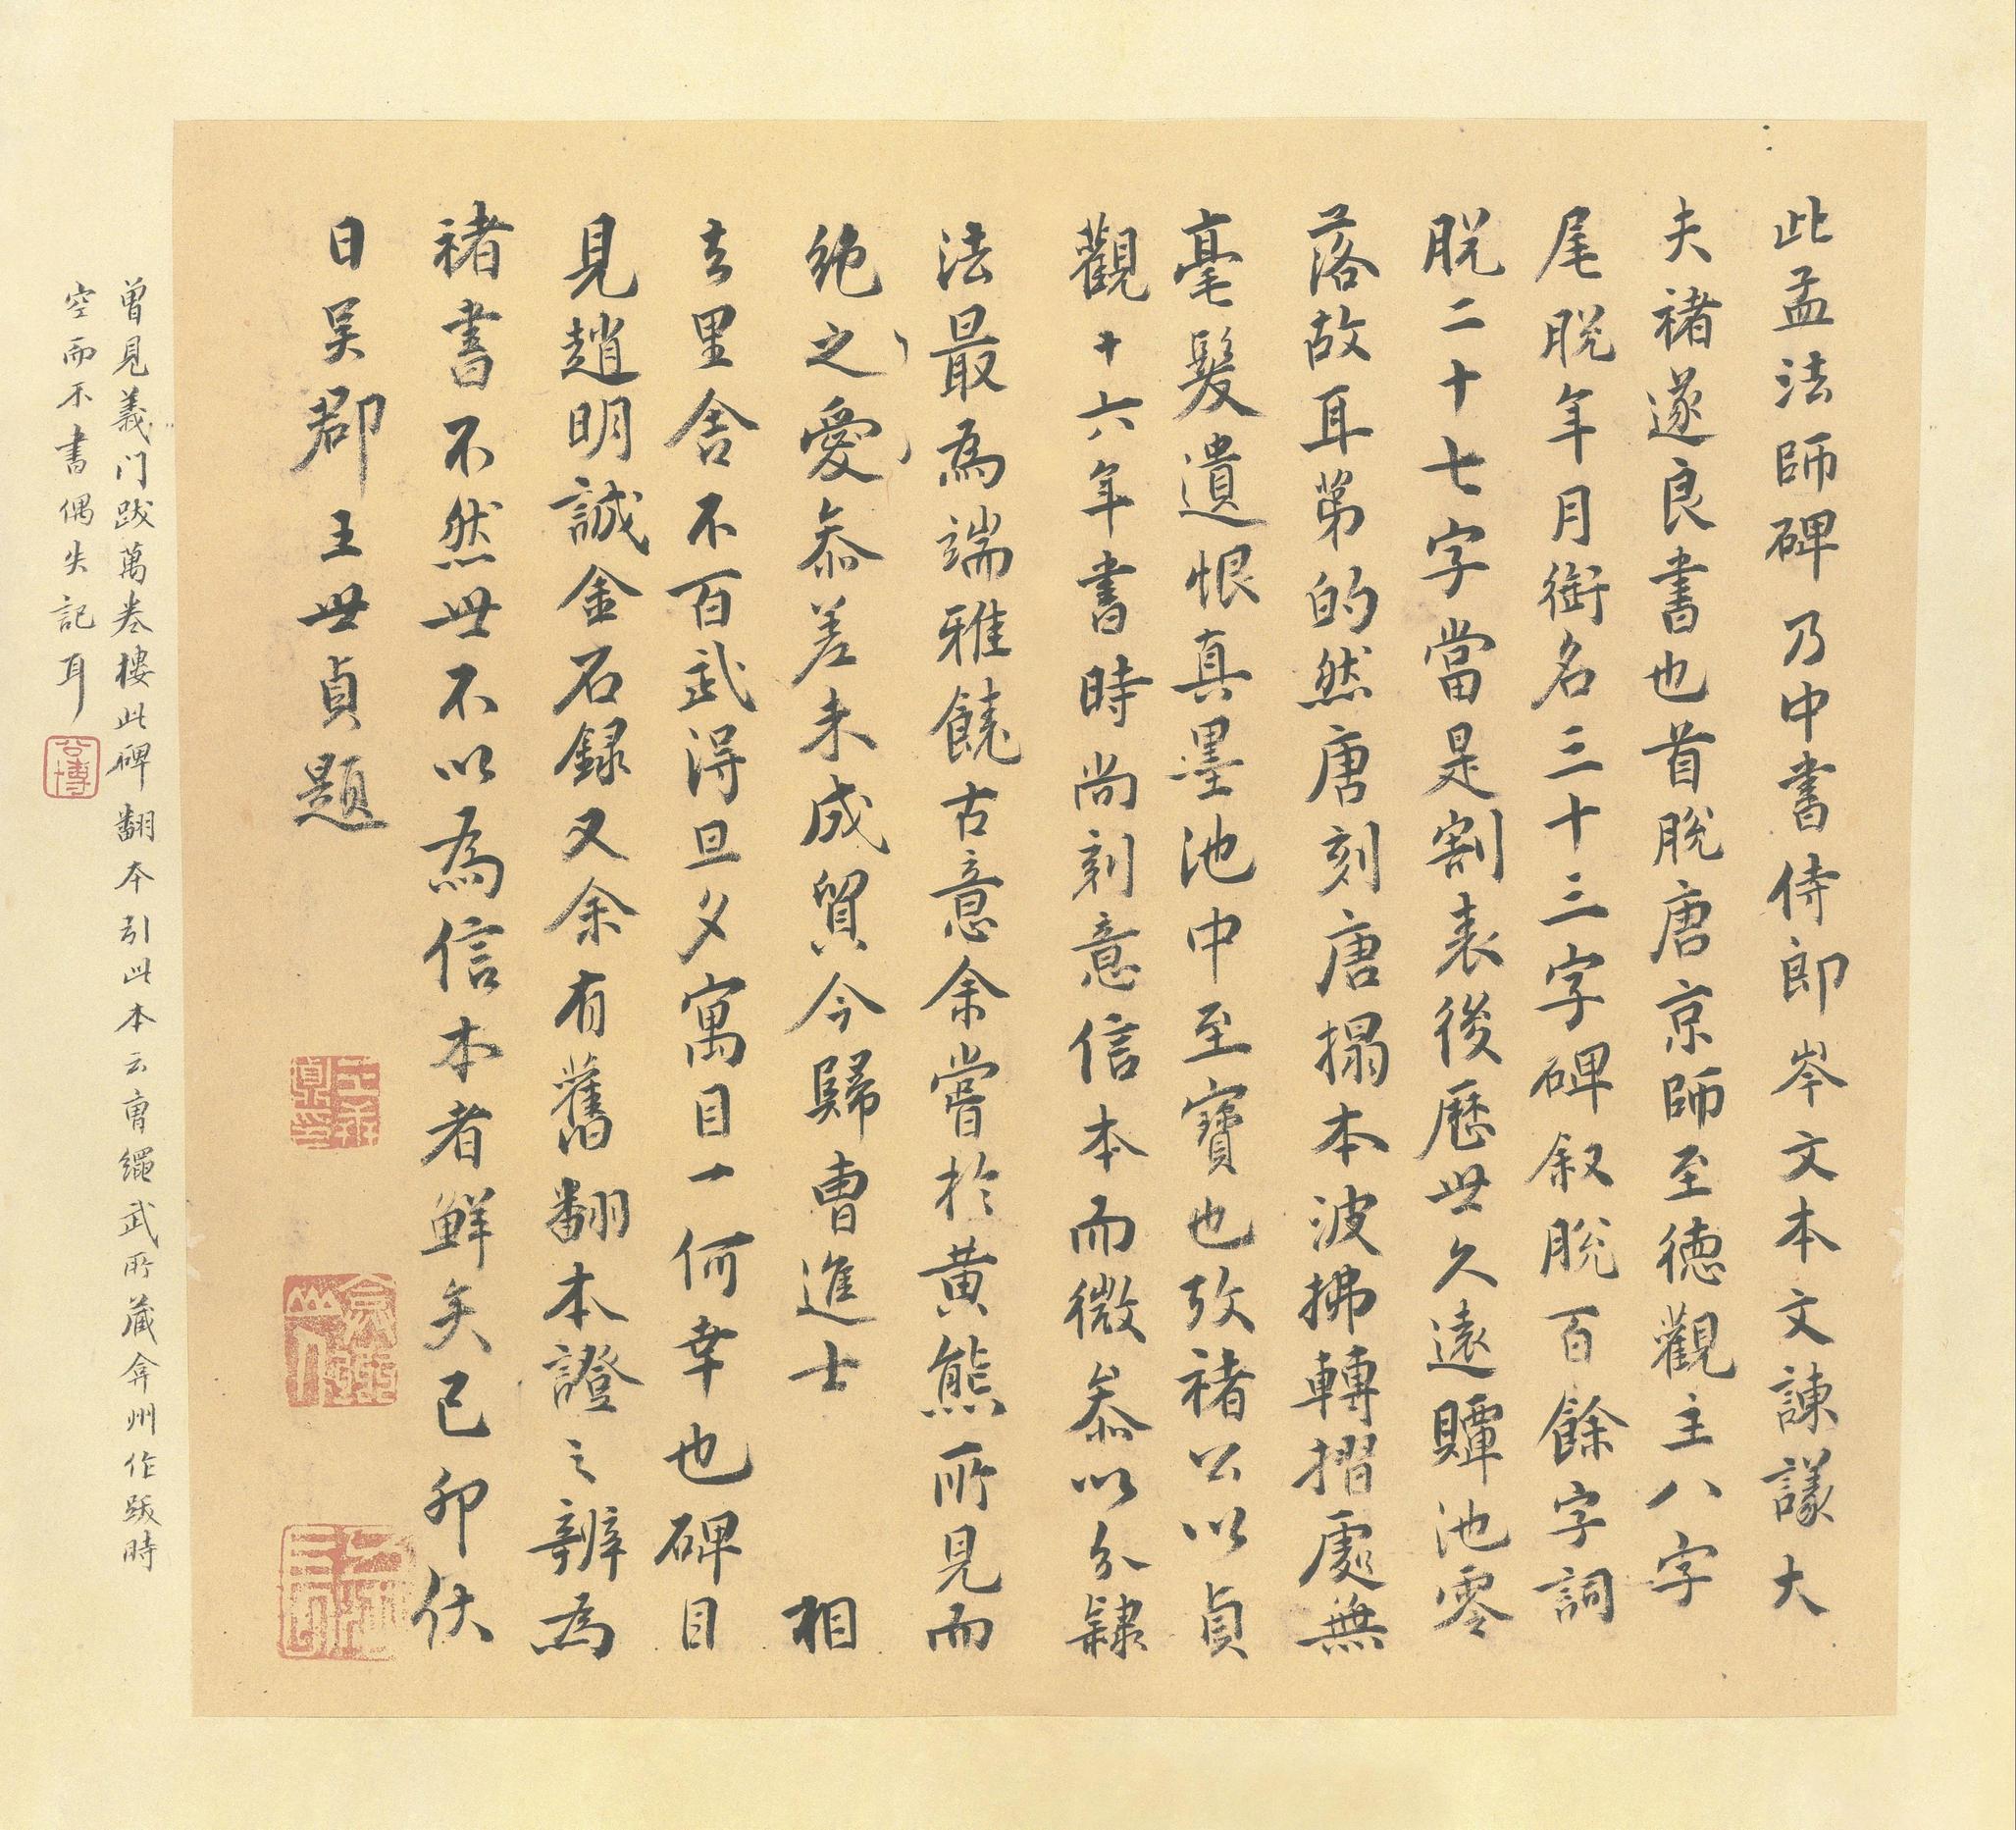 此孟法師碑乃中書侍郎岑文本文諫議大
夫褚遂良書也首脫唐京師至德觀主八字
尾脫年月銜名三十三字碑叙脫百餘字詞
脫二十七字當是割表後歷世久遠贉池零
落故耳第的然唐刻唐搨本波拂轉摺處無
毫髮遺恨真墨池中至寶也攷褚公以貞
觀十六年書時尚刻意信本而微叅以分隸
法最為端雅饒古意余嘗於黃熊所見而
絶之愛叅差未成貿今歸曹進士 相
去里舍不百武得旦夕寓目一何幸也碑目
見趙明誠金石録又余有舊翻本證之辨為
褚書不然世不以為信本者鮮矣己卯伏
日吴郡王世貞題
曽見義门跋萬卷樓此碑翻本引此本云曹繩武所藏弇州作跋時
空而不書偶失記耳
公博